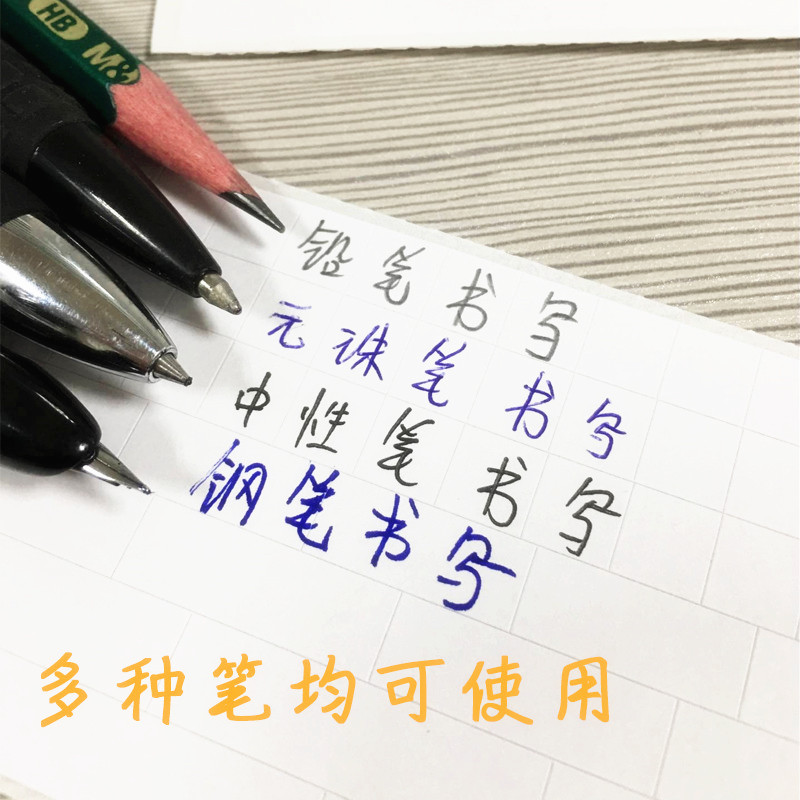 HB M&
铅笔书写
元珠笔书写
中性笔书写
钢笔书写
多种笔均可使用